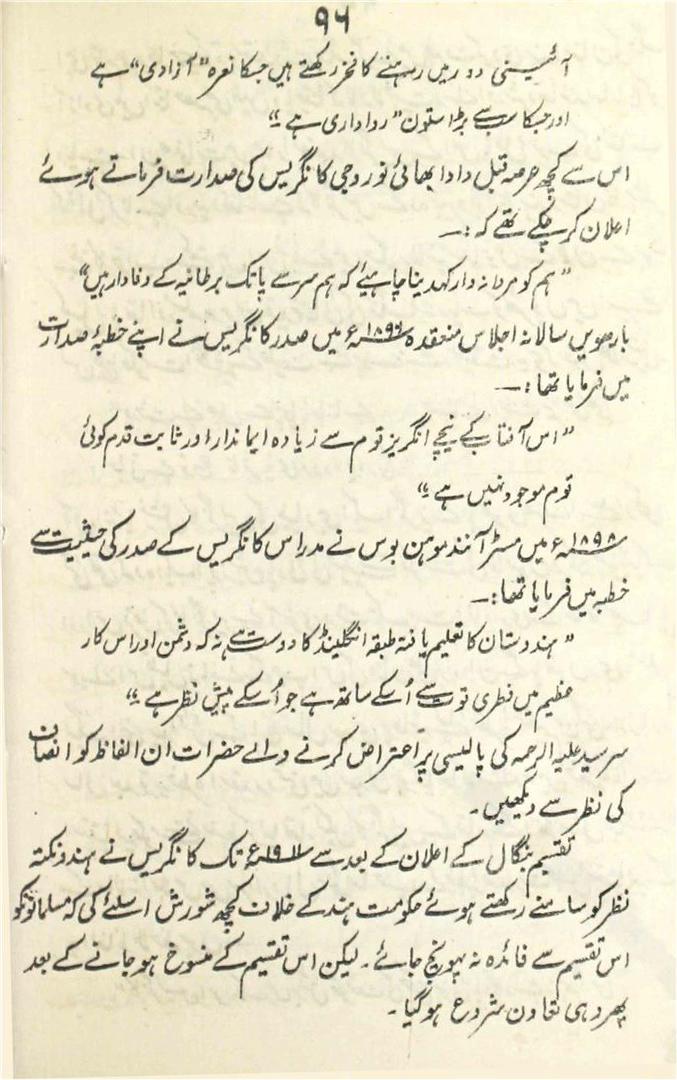 ۹۶
آئینی دور میں رہنے کا فخر رکھتے ہیں جسکا نعرہ "آزادی" ہے
اور جسکا سب سے بڑا ستون "رواداری ہے"
اس سے کچھ عرصہ قبل دادا بھائی نوروجی کانگریس کی صدارت فرماتے ہوئے
اعلان کر چکے تھے کہ:—
"ہم کو مردانہ وار کہدینا چاہیئے کہ ہم سر سے پا تک برطانیہ کے وفادار ہیں"
بارھویں سالانہ اجلاس منعقدہ ۱۸۹۶ء میں صدر کانگریس نے اپنے خطبۂ صدارت
میں فرمایا تھا:—
"اس آفتاب کے نیچے انگریز قوم سے زیادہ ایماندار اور ثابت قدم کوئی
قوم موجود نہیں ہے"
۱۸۹۸ء میں مسٹر آنند موہن بوس نے مدراس کانگریس کے صدر کی حیثیت سے
خطبہ میں فرمایا تھا:—
"ہندوستان کا تعلیم یافتہ طبقہ انگلینڈ کا دوست ہے نہ کہ دشمن اور اس کار
عظیم میں فطری توسے اُسکے ساتھ ہے جو اُسکے پیش نظر ہے"
سرسید علیہ الرحمہ کی پالیسی پر اعتراض کرنے والے حضرات ان الفاظ کو انصاف
کی نظر سے دیکھیں۔
تقسیم بنگال کے اعلان کے بعد سے ۱۹۱۱ء تک کانگریس نے ہندو نکتہ
نظر کو سامنے رکھتے ہوئے حکومت ہند کے خلاف کچھ شورش اسلئے کی کہ مسلمانونکو
اس تقسیم سے فائدہ نہ پہونچ جائے۔ لیکن اس تقسیم کے منسوخ ہو جانے کے بعد
پھر وہی تعاون شروع ہو گیا۔